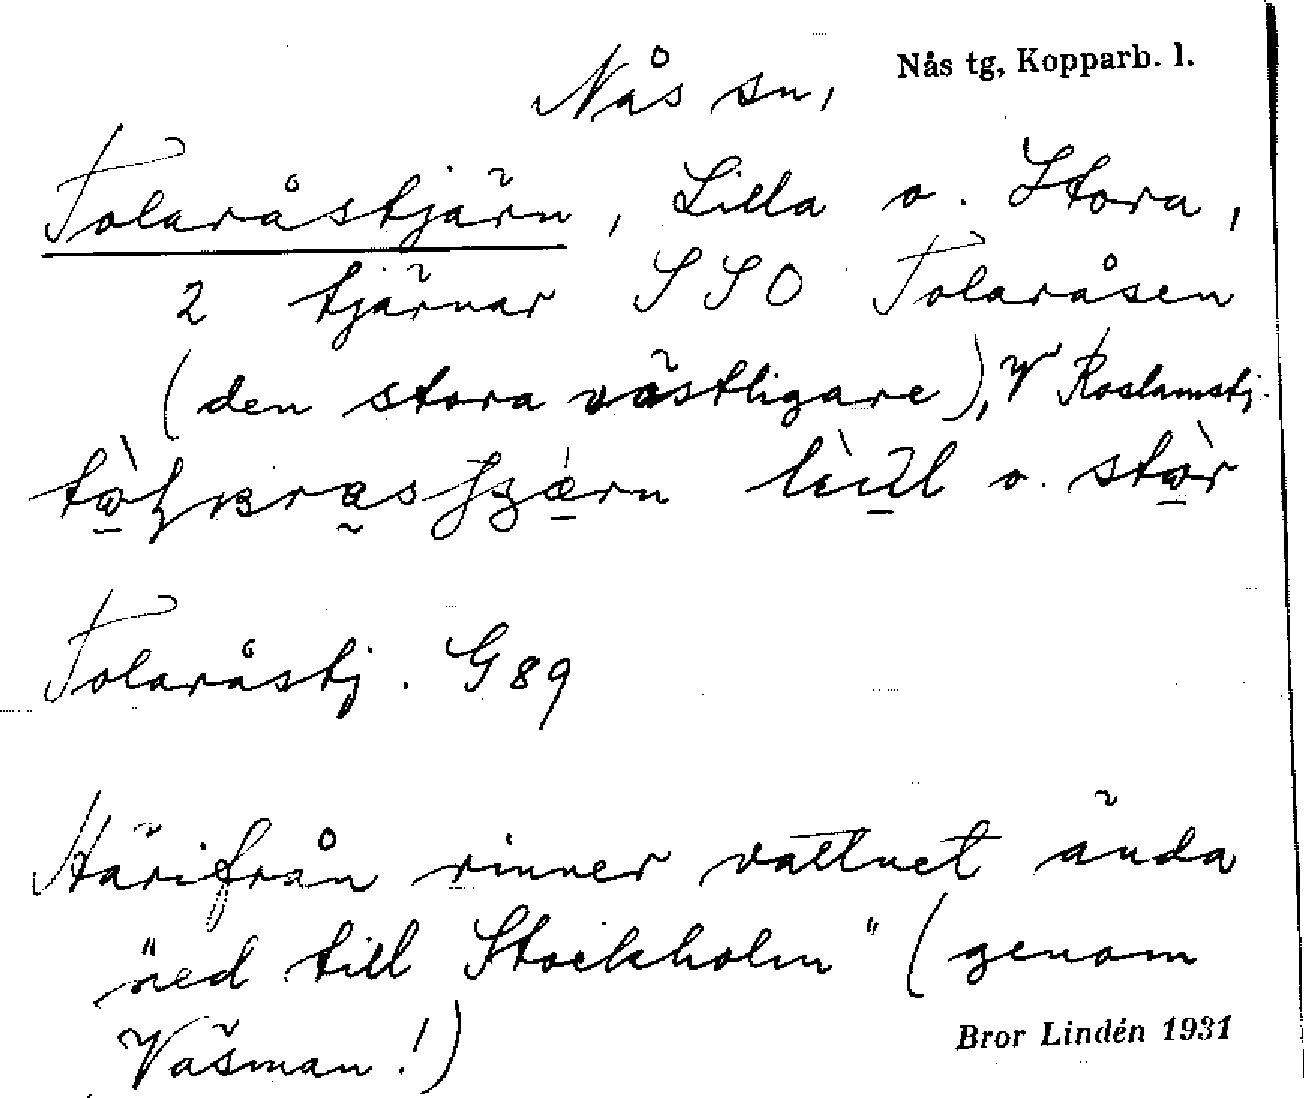 Nås sn,
Nås tg, Kopparb. l.
Tolaråstjärn, Lilla o. Stora,
2 tjärnar SSO Tolaråsen
(den stora västligare), V Roslamstj.
o. stòr
Tolaråstj. G 89
Härifrån rinner vattnet ända
"ned till Stockholm" (genom
Väsman!)
Bror Lindén 1931